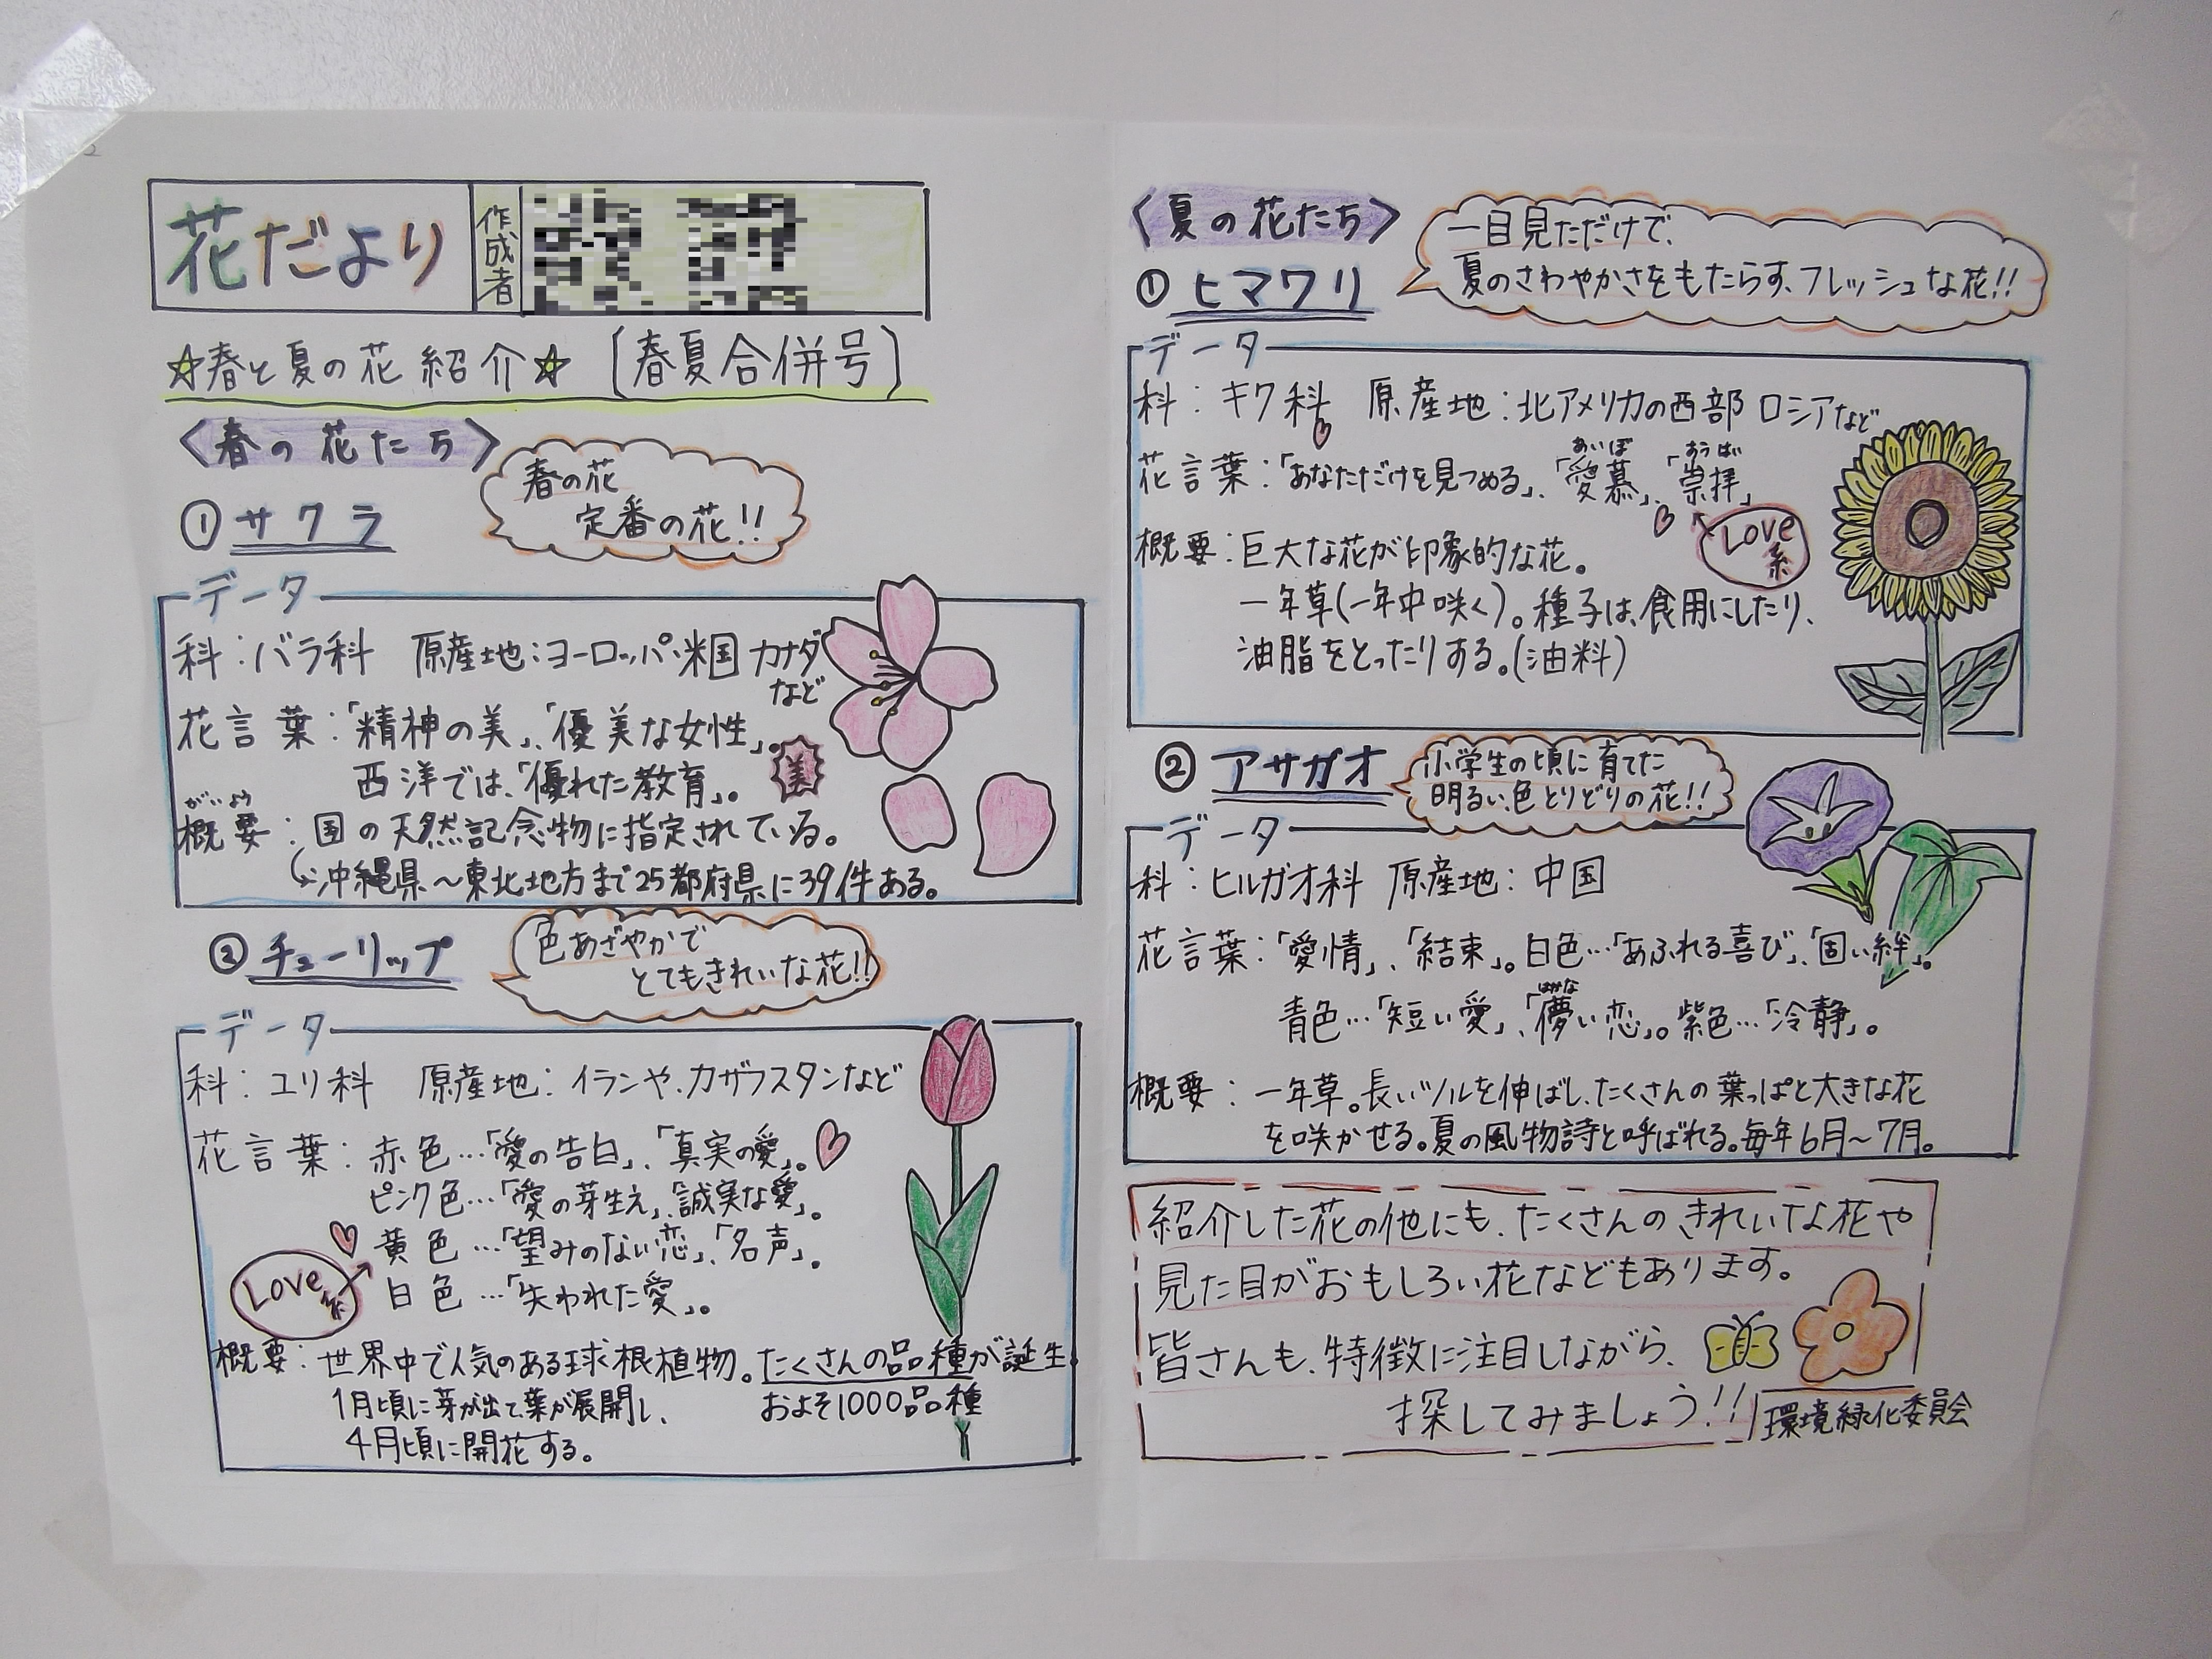 花だより
作成者
☆春と夏の花紹介☆ 〔春夏合併号〕
〈春の花たち〉
春の花
定番の花!!
①サクラ
データ
科:バラ科 原産地:ヨーロッパ・米国 カナダ
など
花言葉:「精神の美」、「優美な女性」。
西洋では、「優れた教育」。
美
がいよう
概要:国の天然記念物に指定されている。
沖縄県〜東北地方まで25都府県に39件ある。
②チューリップ
色あざやかで
とてもきれいな花!!
データ
科:ユリ科 原産地:イランや、カザフスタンなど
花言葉:赤色…「愛の告白」、「真実の愛」。
ピンク色…「愛の芽生え」、「誠実な愛」。
黄色…「望みのない恋」、「名声」。
白色…「失われた愛」。
Love系
概要:世界中で人気のある球根植物。たくさんの品種が誕生
1月頃に芽が出て葉が展開し、
およそ1000品種
4月頃に開花する。
〈夏の花たち〉
一目見ただけで、
夏のさわやかさをもたらす、フレッシュな花!!
①ヒマワリ
データ
科:キク科 原産地:北アメリカの西部 ロシアなど
あいぼ すうはい
花言葉:「あなただけを見つめる」、「愛慕」、「崇拝」
Love系
概要:巨大な花が印象的な花。
一年草(一年中咲く)。種子は、食用にしたり、
油脂をとったりする。(油料)
②アサガオ
小学生の頃に育てた
明るい、色とりどりの花!!
データ
科:ヒルガオ科 原産地:中国
花言葉:「愛情」、「結束」。白色…「あふれる喜び」、「固い絆」。
はかな
青色…「短い愛」、「儚い恋」。紫色…「冷静」。
概要:一年草。長いツルを伸ばし、たくさんの葉っぱと大きな花
を咲かせる。夏の風物詩と呼ばれる。毎年6月〜7月。
紹介した花の他にも、たくさんのきれいな花や
見た目がおもしろい花などもあります。
皆さんも、特徴に注目しながら、
探してみましょう!!
環境緑化委員会